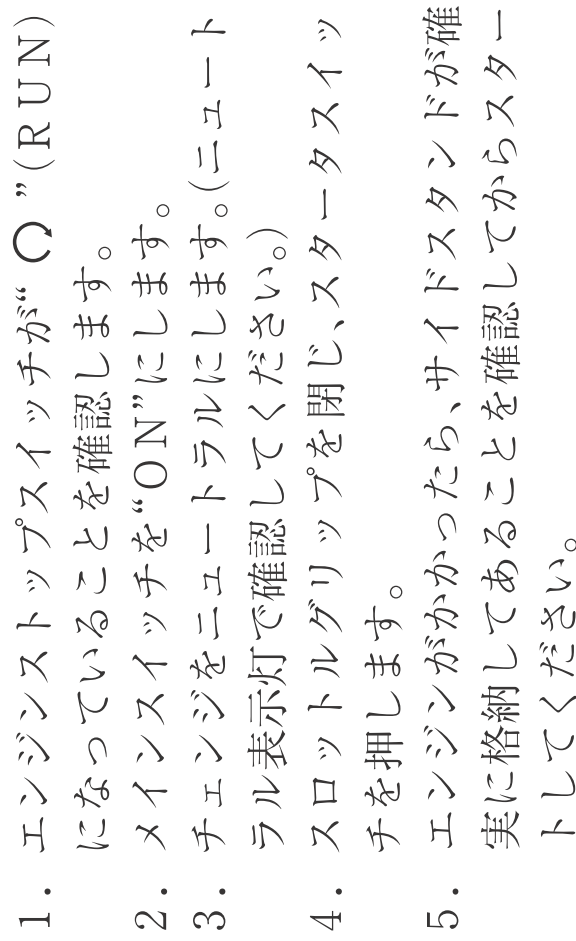 1. エンジンストップスイッチが“ ”(RUN)
になっていることを確認します。
2. メインスイッチを“ON”にします。
3. チェンジをニュートラルにします。(ニュート
ラル表示灯で確認してください。)
4. スロットルグリップを閉じ、スタータスイッ
チを押します。
5. エンジンがかかったら、サイドスタンドが確
実に格納してあることを確認してからスター
トしてください。